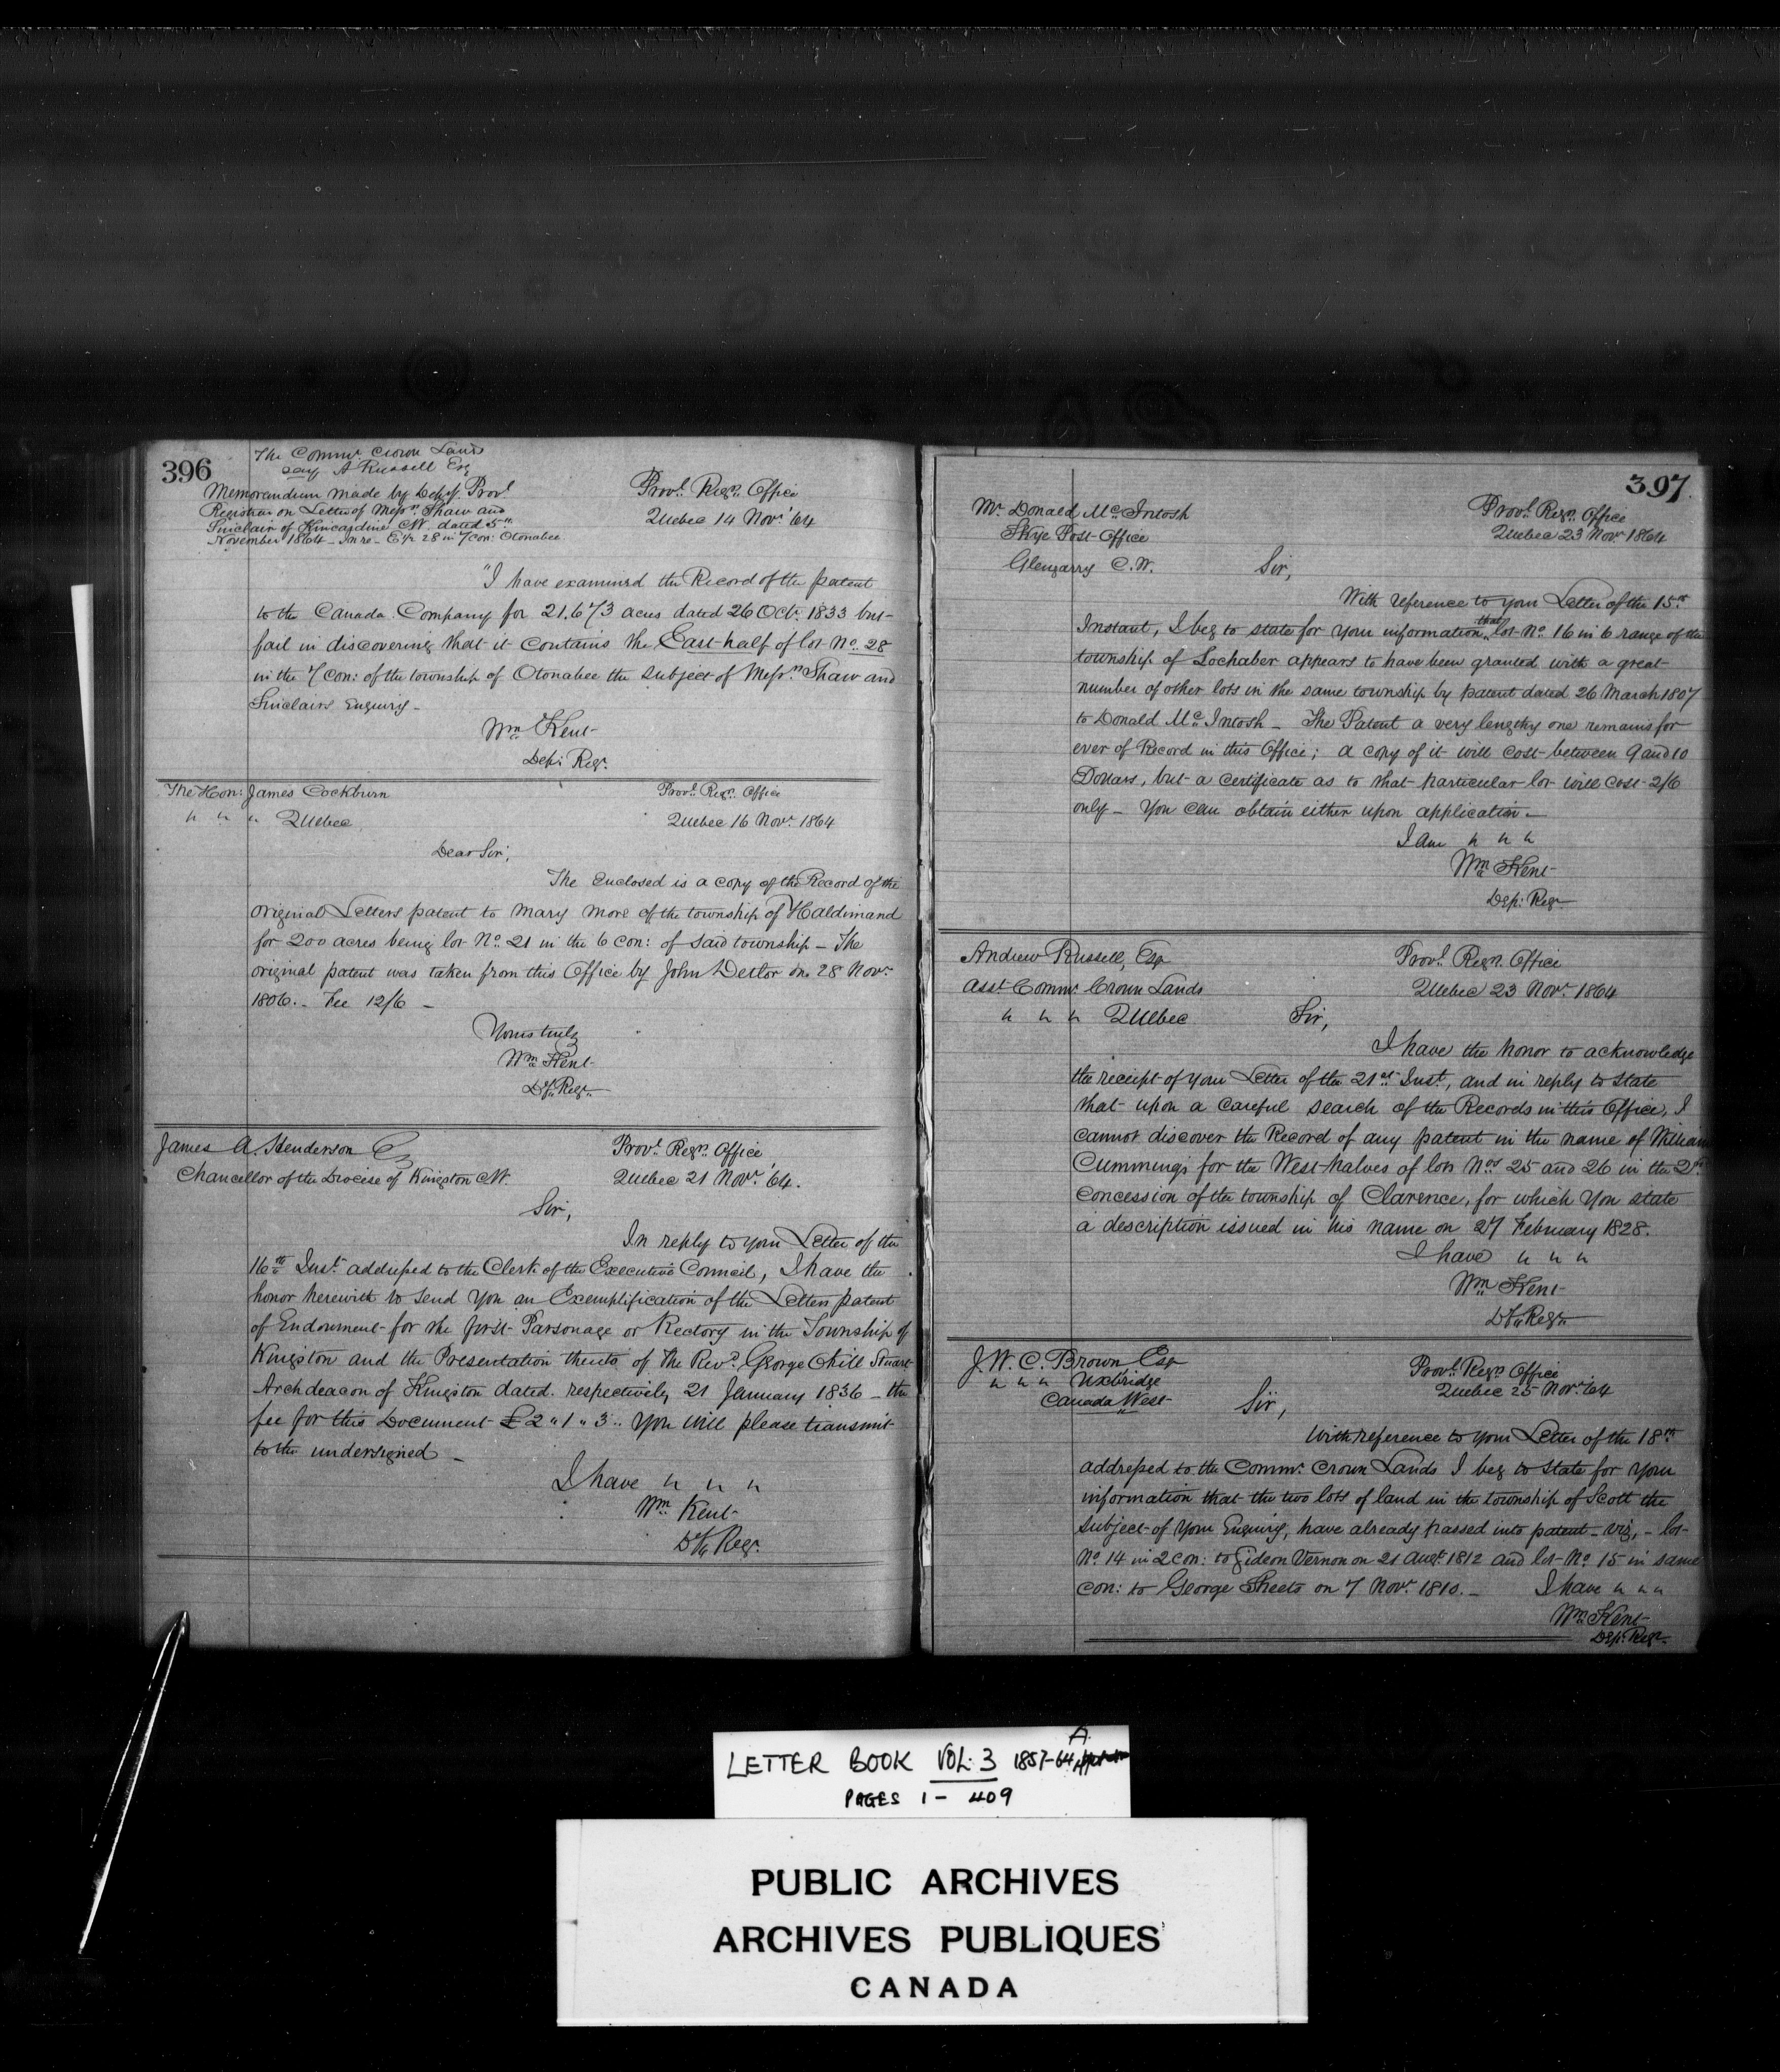 396
The Commr. Crown Lands
A Russell Esq
Memorandum made by Depy. Provl
Registrar on Letter of Messrs. Shaw and
Sinclair of Kincardine CW. dated 5th
November 1864 - In re - E½ 28 in 7 con: Otonabee
Provl. Regrs. Office
Quebec 14 Novr. '64
"I have examined the Record of the patent
to the Canada Company for 21.673 acres dated 26 Octr. 1833 but
fail in discovering that it contains the East half of lot No. 28
in the 7 con: of the township of Otonabee the subject of Messrs. Shaw and
Sinclairs Enquiry -
Wm Kent
Dep: Regr.
The Hon: James Cockburn
" " " Quebec
Provl. Regrs. Office
Quebec 16 Novr. 1864
Dear Sir,
The Enclosed is a copy of the Record of the
original Letters patent to Mary More of the township of Haldimand
for 200 acres being lot No. 21 in the 6 con: of said township - The
original patent was taken from this Office by John Detlor on 28 Novr.
1806. - Fee 12/6 -
Yours truly
Wm Kent
Dy Regr
James A. Henderson Esq
Chancellor of the Diocese of Kingston CW.
Provl. Regrs. Office
Quebec 21 Novr. '64.
Sir,
In reply to your Letter of the
16th Inst. addressed to the Clerk of the Executive Council, I have the
honor herewith to send you an Exemplification of the Letters patent
of Endowment for the first Parsonage or Rectory in the Township of
Kingston and the Presentation thereto of The Revd. George Okill Stuart
Archdeacon of Kingston dated respectively 21 January 1836 - the
fee for this Document £2 " 1 " 3 " you will please transmit
to the undersigned -
I have " " "
Wm Kent
Dy Regr.
397.
Mr Donald McIntosh
Skye Post Office
Glengarry C.W.
Provl. Regrs. Office
Quebec 23 Novr 1864
Sir,
With reference to your Letter of the 15th
Instant, I beg to state for your information, that lot No. 16 in 6 range of the
township of Lochaber appears to have been granted with a great
number of other lots in the same township by patent dated 26 March 1807
to Donald McIntosh - The Patent a very lengthy one remains for
ever of Record in this Office; a copy of it will cost between 9 and 10
Dollars, but a certificate as to that particular lot will cost 2/6
only - You can obtain either upon application -
I am " " "
Wm Kent
Dep: Regr
Andrew Russell, Esq
Asst Commr. Crown Lands
" " " Quebec
Provl. Regrs. Office
Quebec 23 Novr. 1864
Sir,
I have the honor to acknowledge
the receipt of your Letter of the 21st Inst, and in reply to state
that upon a careful search of the Records in this Office, I
cannot discover the Record of any patent in the name of William
Cummings for the West halves of lots Nos 25 and 26 in the 2nd
concession of the township of Clarence, for which you state
a description issued in his name on 27 February 1828.
I have " " "
Wm Kent
Dy Regr
J. W. C. Brown Esq
" " " Uxbridge
Canada West
Provl. Regrs. Office
Quebec 25 Novr. '64
Sir,
With reference to your Letter of the 18th
addressed to the Commr. Crown Lands I beg to state for your
information that the two lots of land in the township of Scott the
subject of your Enquiry, have already passed into patent - viz, - lot
No. 14 in 2 con: to Gideon Vernon on 21 Augt. 1812 and lot No. 15 in same
con: to George Sheets on 7 Novr. 1810. - I have " " "
Wm Kent
Dep: Regr.
A.
LETTER BOOK VOL. 3 1857-64
PAGES 1 - 409
PUBLIC ARCHIVES
ARCHIVES PUBLIQUES
CANADA